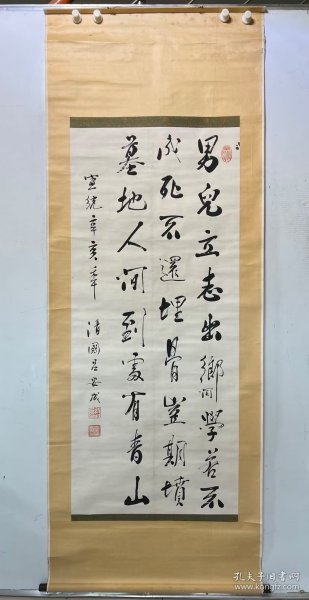 男兒立志出鄉関學若不
成死不還埋骨豈期墳
墓地人间到處有青山
宣統辛亥年
清國呂
孔夫子旧书网
www.kongfz.com